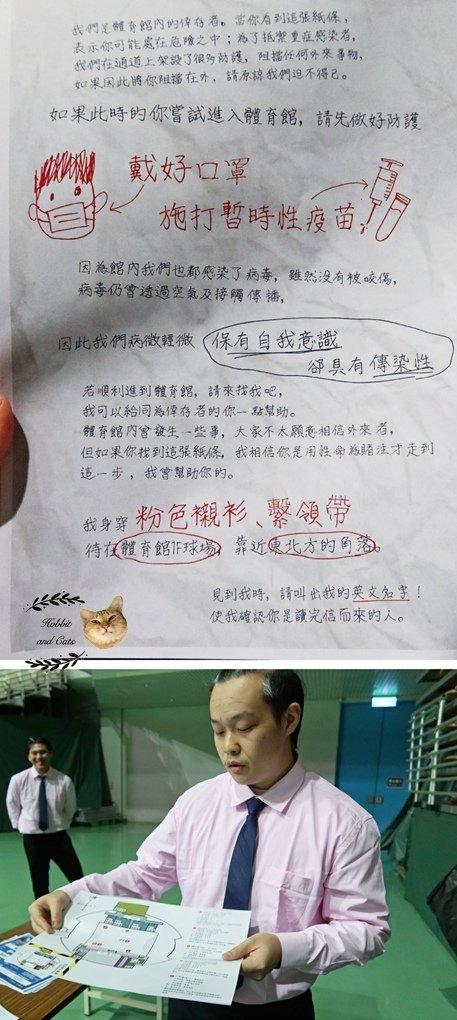 我們是體育館內的倖存者。當你看到這張紙條，
表示你可能處在危險之中；為了抵禦重症感染者，
我們在通道上架設了很多防護，阻擋任何外來事物，
如果因此將你阻擋在外，請原諒我們迫不得已。
如果此時的你嘗試進入體育館，請先做好防護
戴好口罩
施打暫時性疫苗
因為館內我們也都感染了病毒，雖然沒有被咬傷，
病毒仍會透過空氣及接觸傳播，
因此我們病徵輕微 保有自我意識
卻具有傳染性
若順利進到體育館，請來找我吧，
我可以給同為倖存者的你一點幫助。
體育館內會發生一些事，大家不太願意相信外來者，
但如果你找到這張紙條，我相信你是用性命為賭注才走到
這一步，我會幫助你的。
我身穿 粉色襯衫、繫領帶
待在體育館1F球場，靠近東北方的角落。
見到我時，請叫出我的英文名字！
使我確認你是讀完信而來的人。
Hobbit
and Cats